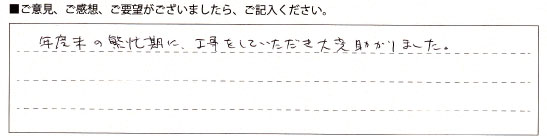 ■ご意見、ご感想、ご要望がございましたら、ご記入ください。
年度末の繁忙期に、工事をしていただき大変助かりました。